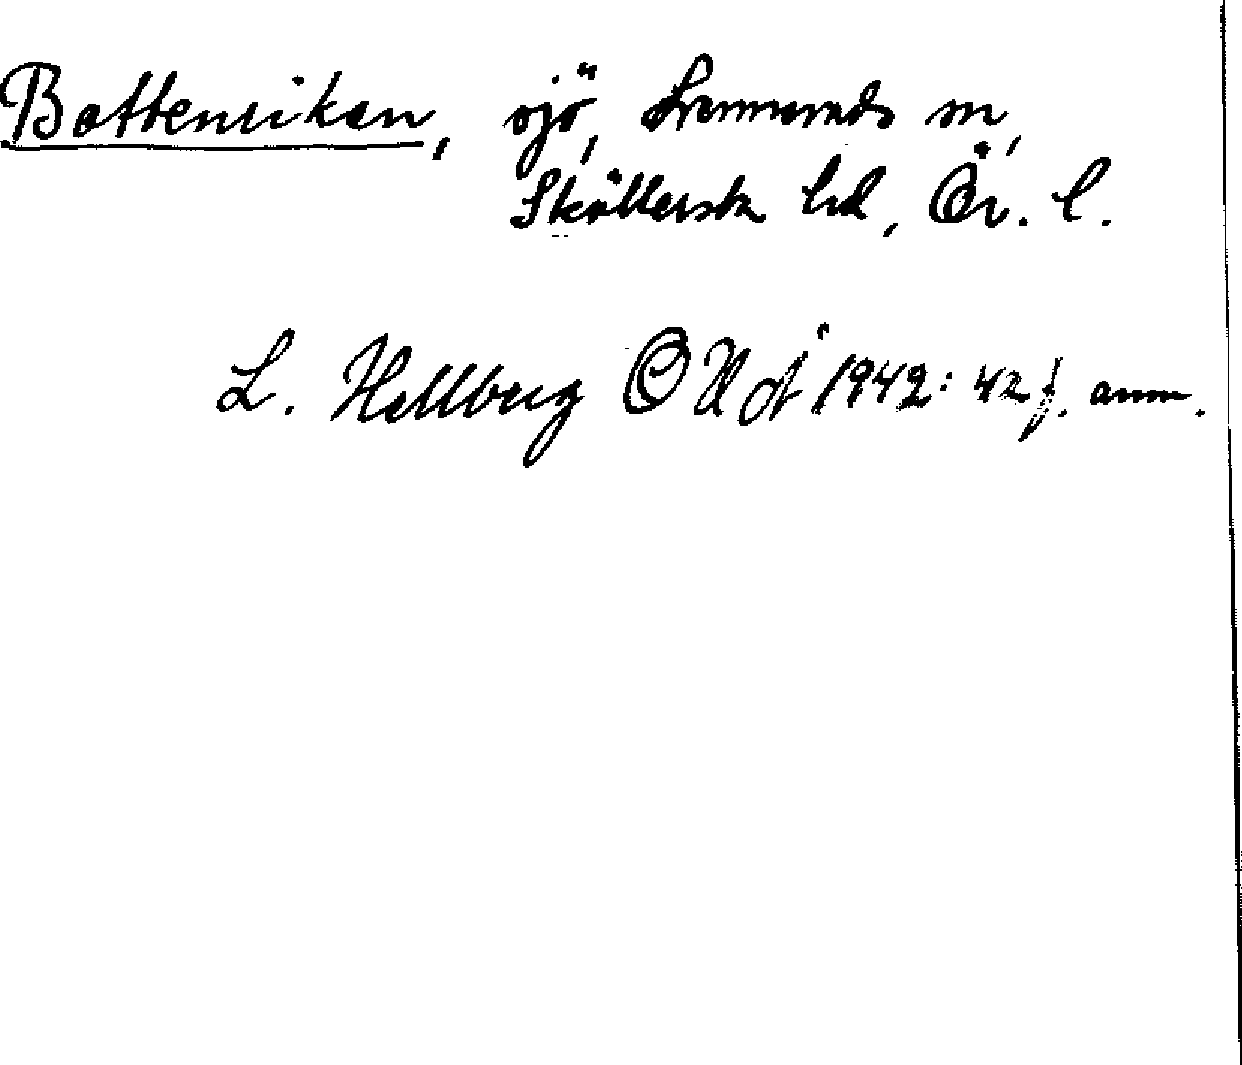 Bottenviken, sjö, Svennevads sn,
Sköllersta hd, Ör. l.
L. Hellberg OUÅ 1942: 42 f. anm.